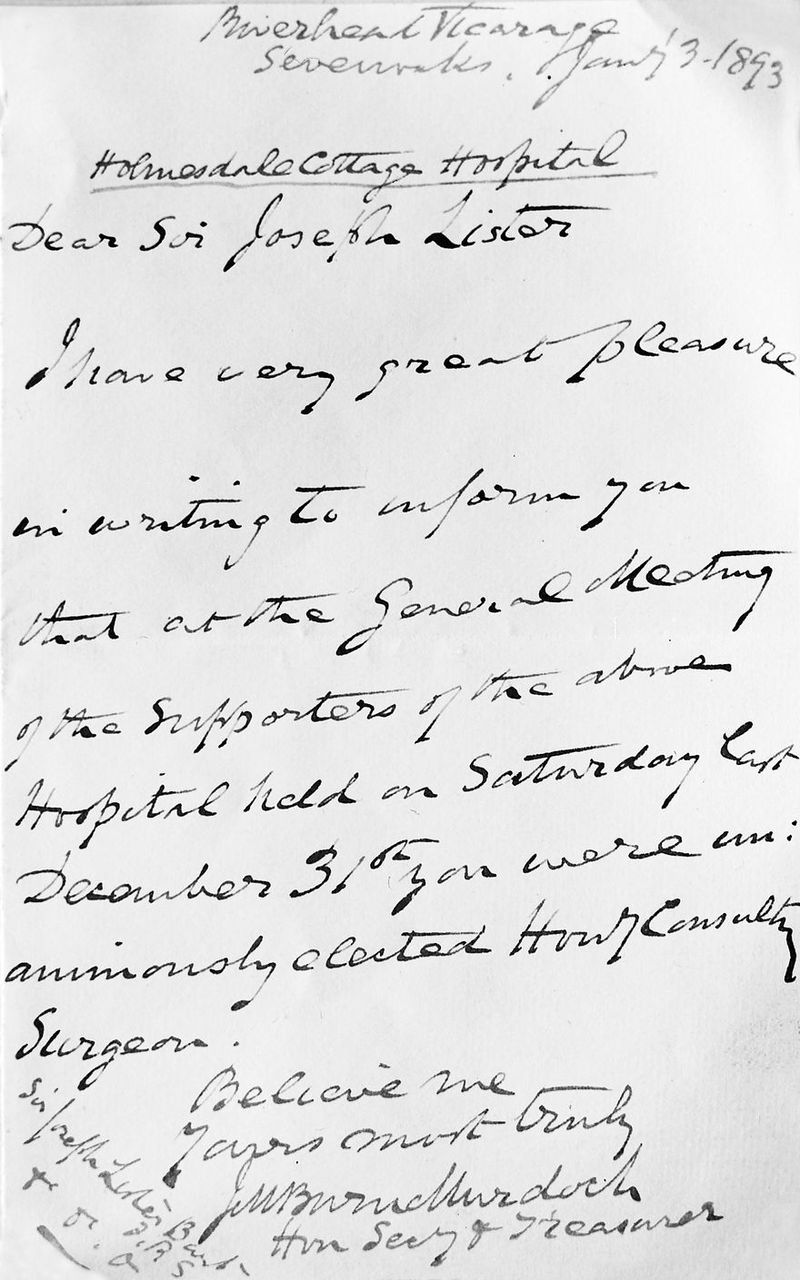 Riverhead Vicarage
Sevenoaks. Jany 3-1893
Holmesdale Cottage Hospital
Dear Sir Joseph Lister
I have very great pleasure
in writing to inform you
that at the General Meeting
of the Supporters of the above
Hospital held on Saturday last
December 31st you were un:
animously elected Hony Consultg
Surgeon.
Believe me
Yours most truly
J M Burn Murdoch
Hon Secy & Treasurer
Sir Joseph Lister Bart
F.R.S
&c